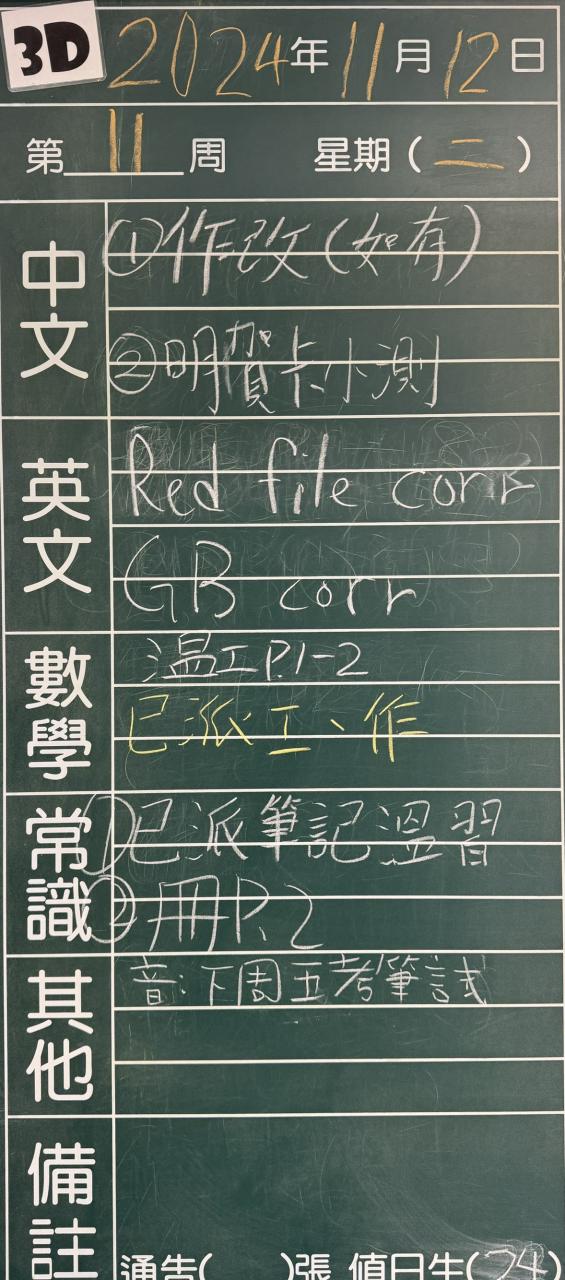 3D 2024年11月12日
第11周 星期(二)
中文
①作改(如有)
②明賀卡小測
英文
Red file corr
GB corr
數學
溫工P.1-2
已派工、作
常識
①已派筆記溫習
②冊P.2
其他
音:下周五考筆試
備註
通告( )張 值日生(24)